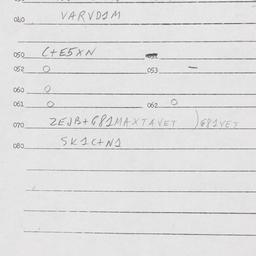 040 VARVD1M
050 C+E5XN
052 0 053 –
060 0
061 0 062 0
070 2EJB+G81MAXTAVET )G81VET
080 SK1C+N1